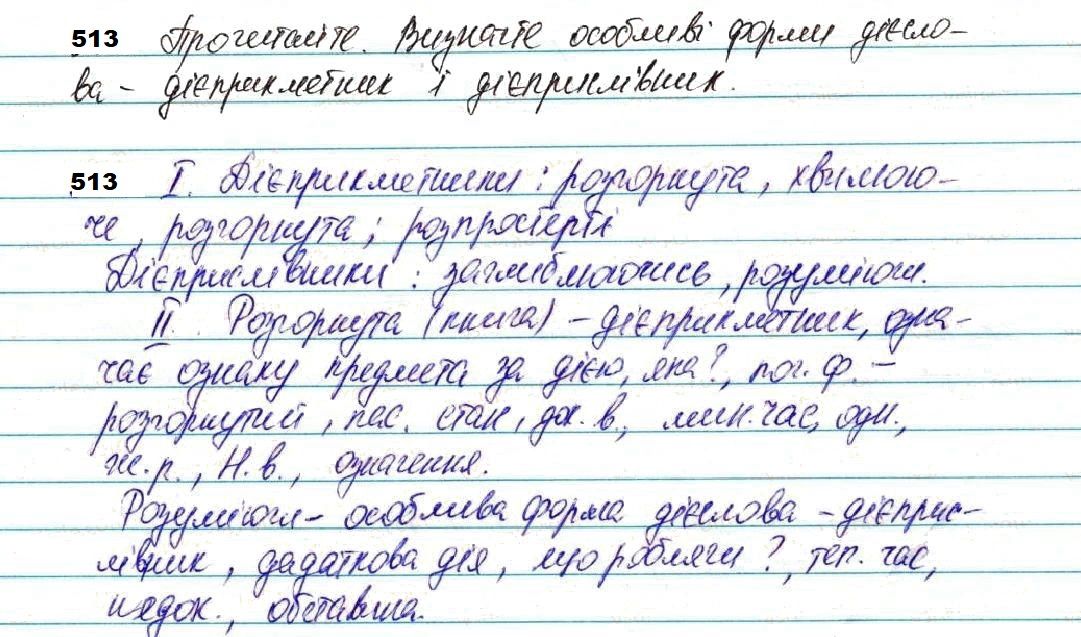 513 Прочитайте. Визначте особливі форми дієсло-
ва - дієприкметник і дієприслівник.
513 І. Дієприкметники: розгорнута, хвилюю-
че, розгорнута; розпростерті
Дієприслівники: заглиблюючись, розуміючи.
ІІ. Розгорнута (книга) - дієприкметник, озна-
чає ознаку предмета за дією, яка?, поч. ф. -
розгорнутий, пас. стан, док. в., мин. час, одн.,
ж. р., Н. в., означення.
Розуміючи - особлива форма дієслова - дієприс-
лівник, додаткова дія, що роблячи?, теп. час,
недок., обставина.